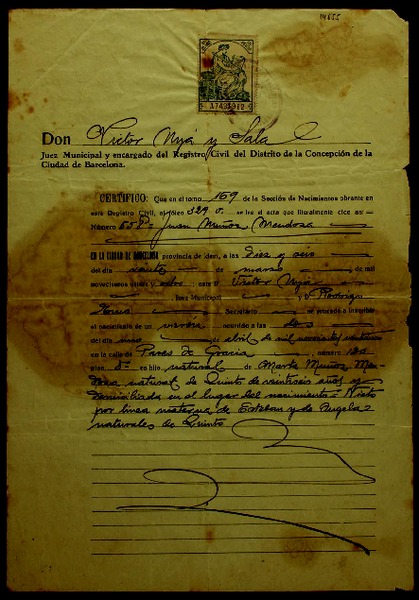 14655
A7435912
Don Victor Mijá y Sala
Juez Municipal y encargado del Registro Civil del Distrito de la Concepción de la
Ciudad de Barcelona.
CERTIFICO: Que en el tomo 169 de la Sección de Nacimientos obrante
en este Registro Civil, al folio 329 v. se lee el acta que literalmente dice así:
Número Juan Muñoz Mendoza
EN LA CIUDAD DE BARCELONA provincia de idem, a las diez y seis
del día de marzo de mil
novecientos y ocho; ante D. Victor Mijá
Juez Municipal y D. Rodrigo
Secretario se procede a inscribir
el nacimiento de un varón ocurrido a las dos
del día de abril de mil novecientos
en la calle de Paseo de Gracia, número
piso es hijo natural de Marta Muñoz Men-
doza natural de Quinto de veintiseis años y
domiciliada en el lugar del nacimiento = Nieto
por línea materna de Esteban y de Angela =
naturales de Quinto